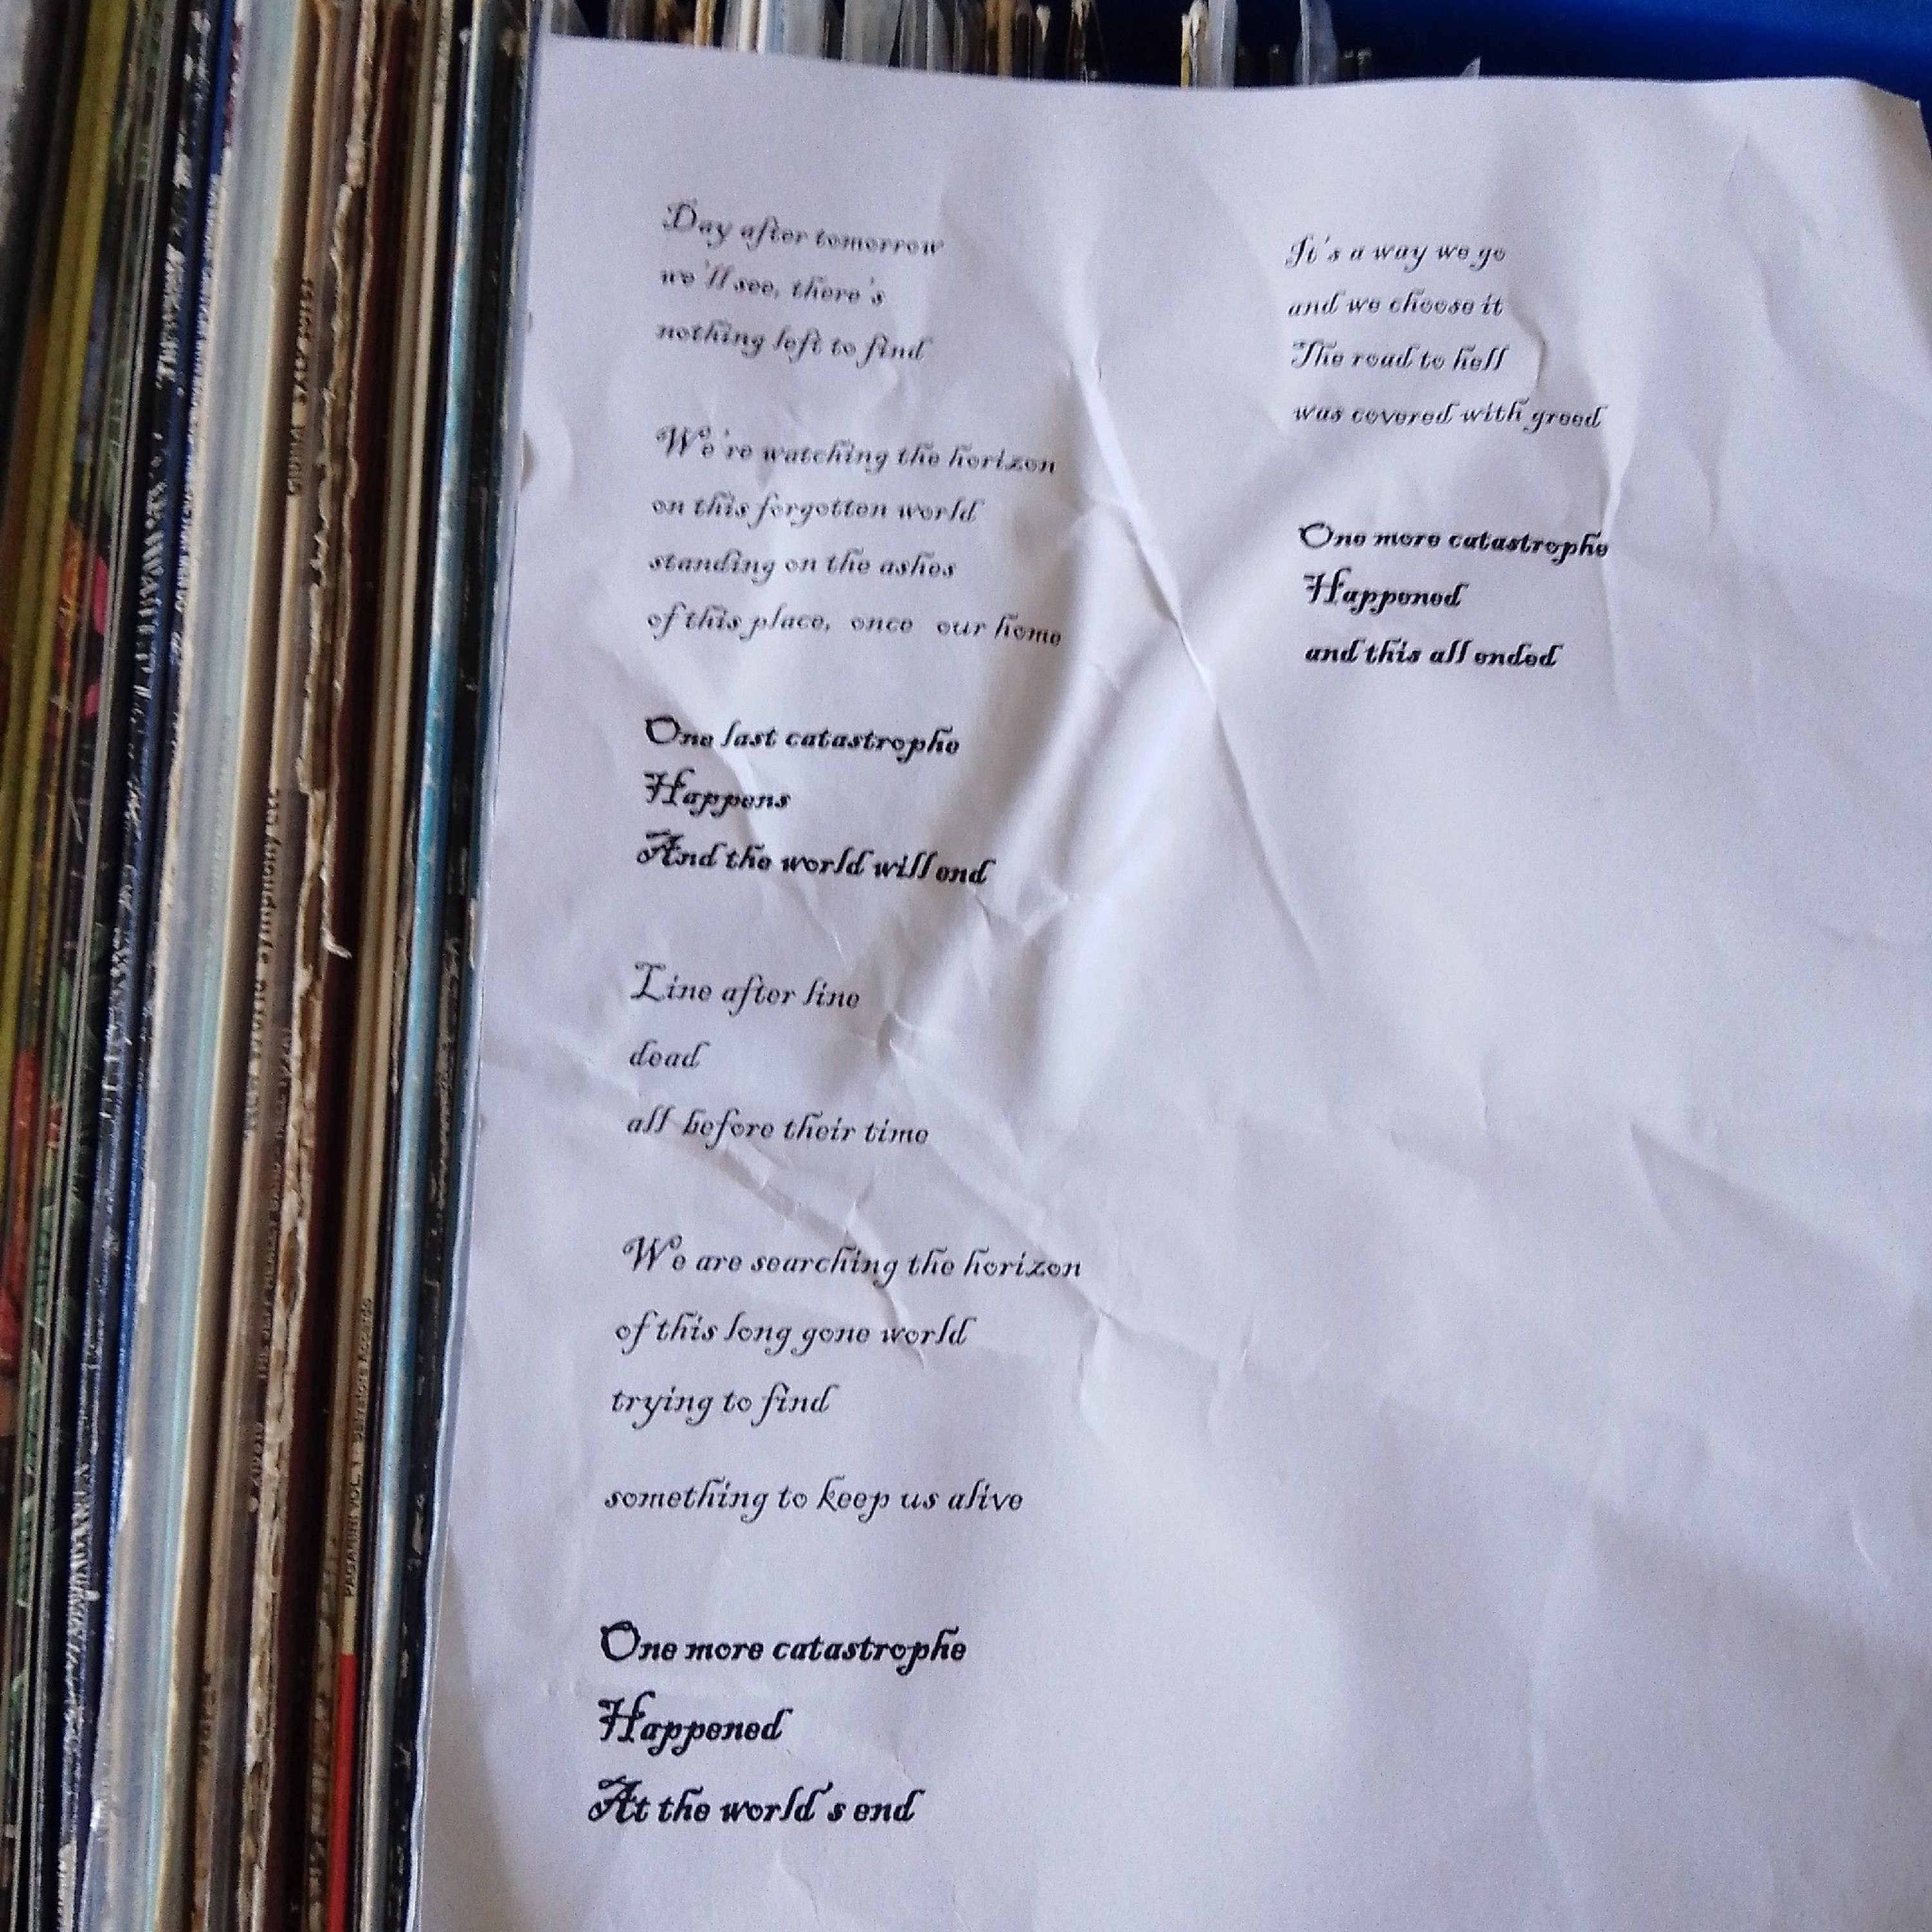 Day after tomorrow
we'll see, there's
nothing left to find
We're watching the horizon
on this forgotten world
standing on the ashes
of this place, once our home
One last catastrophe
Happens
And the world will end
Line after line
dead
all before their time
We are searching the horizon
of this long gone world
trying to find
something to keep us alive
One more catastrophe
Happened
At the world's end
It's a way we go
and we choose it
The road to hell
was covered with greed
One more catastrophe
Happened
and this all ended